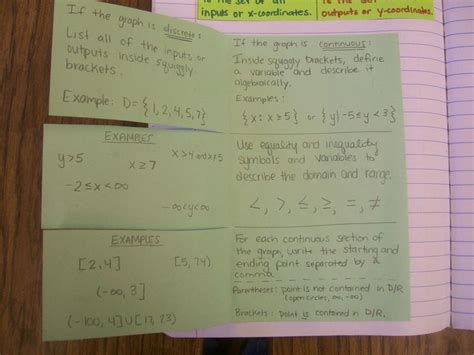 to the set of all
inputs or x-coordinates.
to the set
outputs or y-coordinates.
If the graph is discrete:
List all of the inputs or
outputs inside squggly
brackets.
Example: D={1,2,4,5,7}
If the graph is continuous:
Inside squggly brackets, define
a variable and describe it
algebraically.
Examples:
{x: x≥5} or {y|-5≤y<3}
EXAMPLES
y>5
x≥7
-2≤x<∞
-∞<y<∞
Use equality and inequality
symbols and variables to
describe the domain and range.
<, >, ≤, ≥, =, ≠
EXAMPLES
[2,4]
[5,74)
(-∞, 3]
(-100, 4]∪[17, 23)
For each continuous section of
the graph, write the starting and
ending point separated by a
comma.
Parentheses: point is not contained in D/R
(open circles, ∞, -∞)
Brackets: Point is contained in D/R.